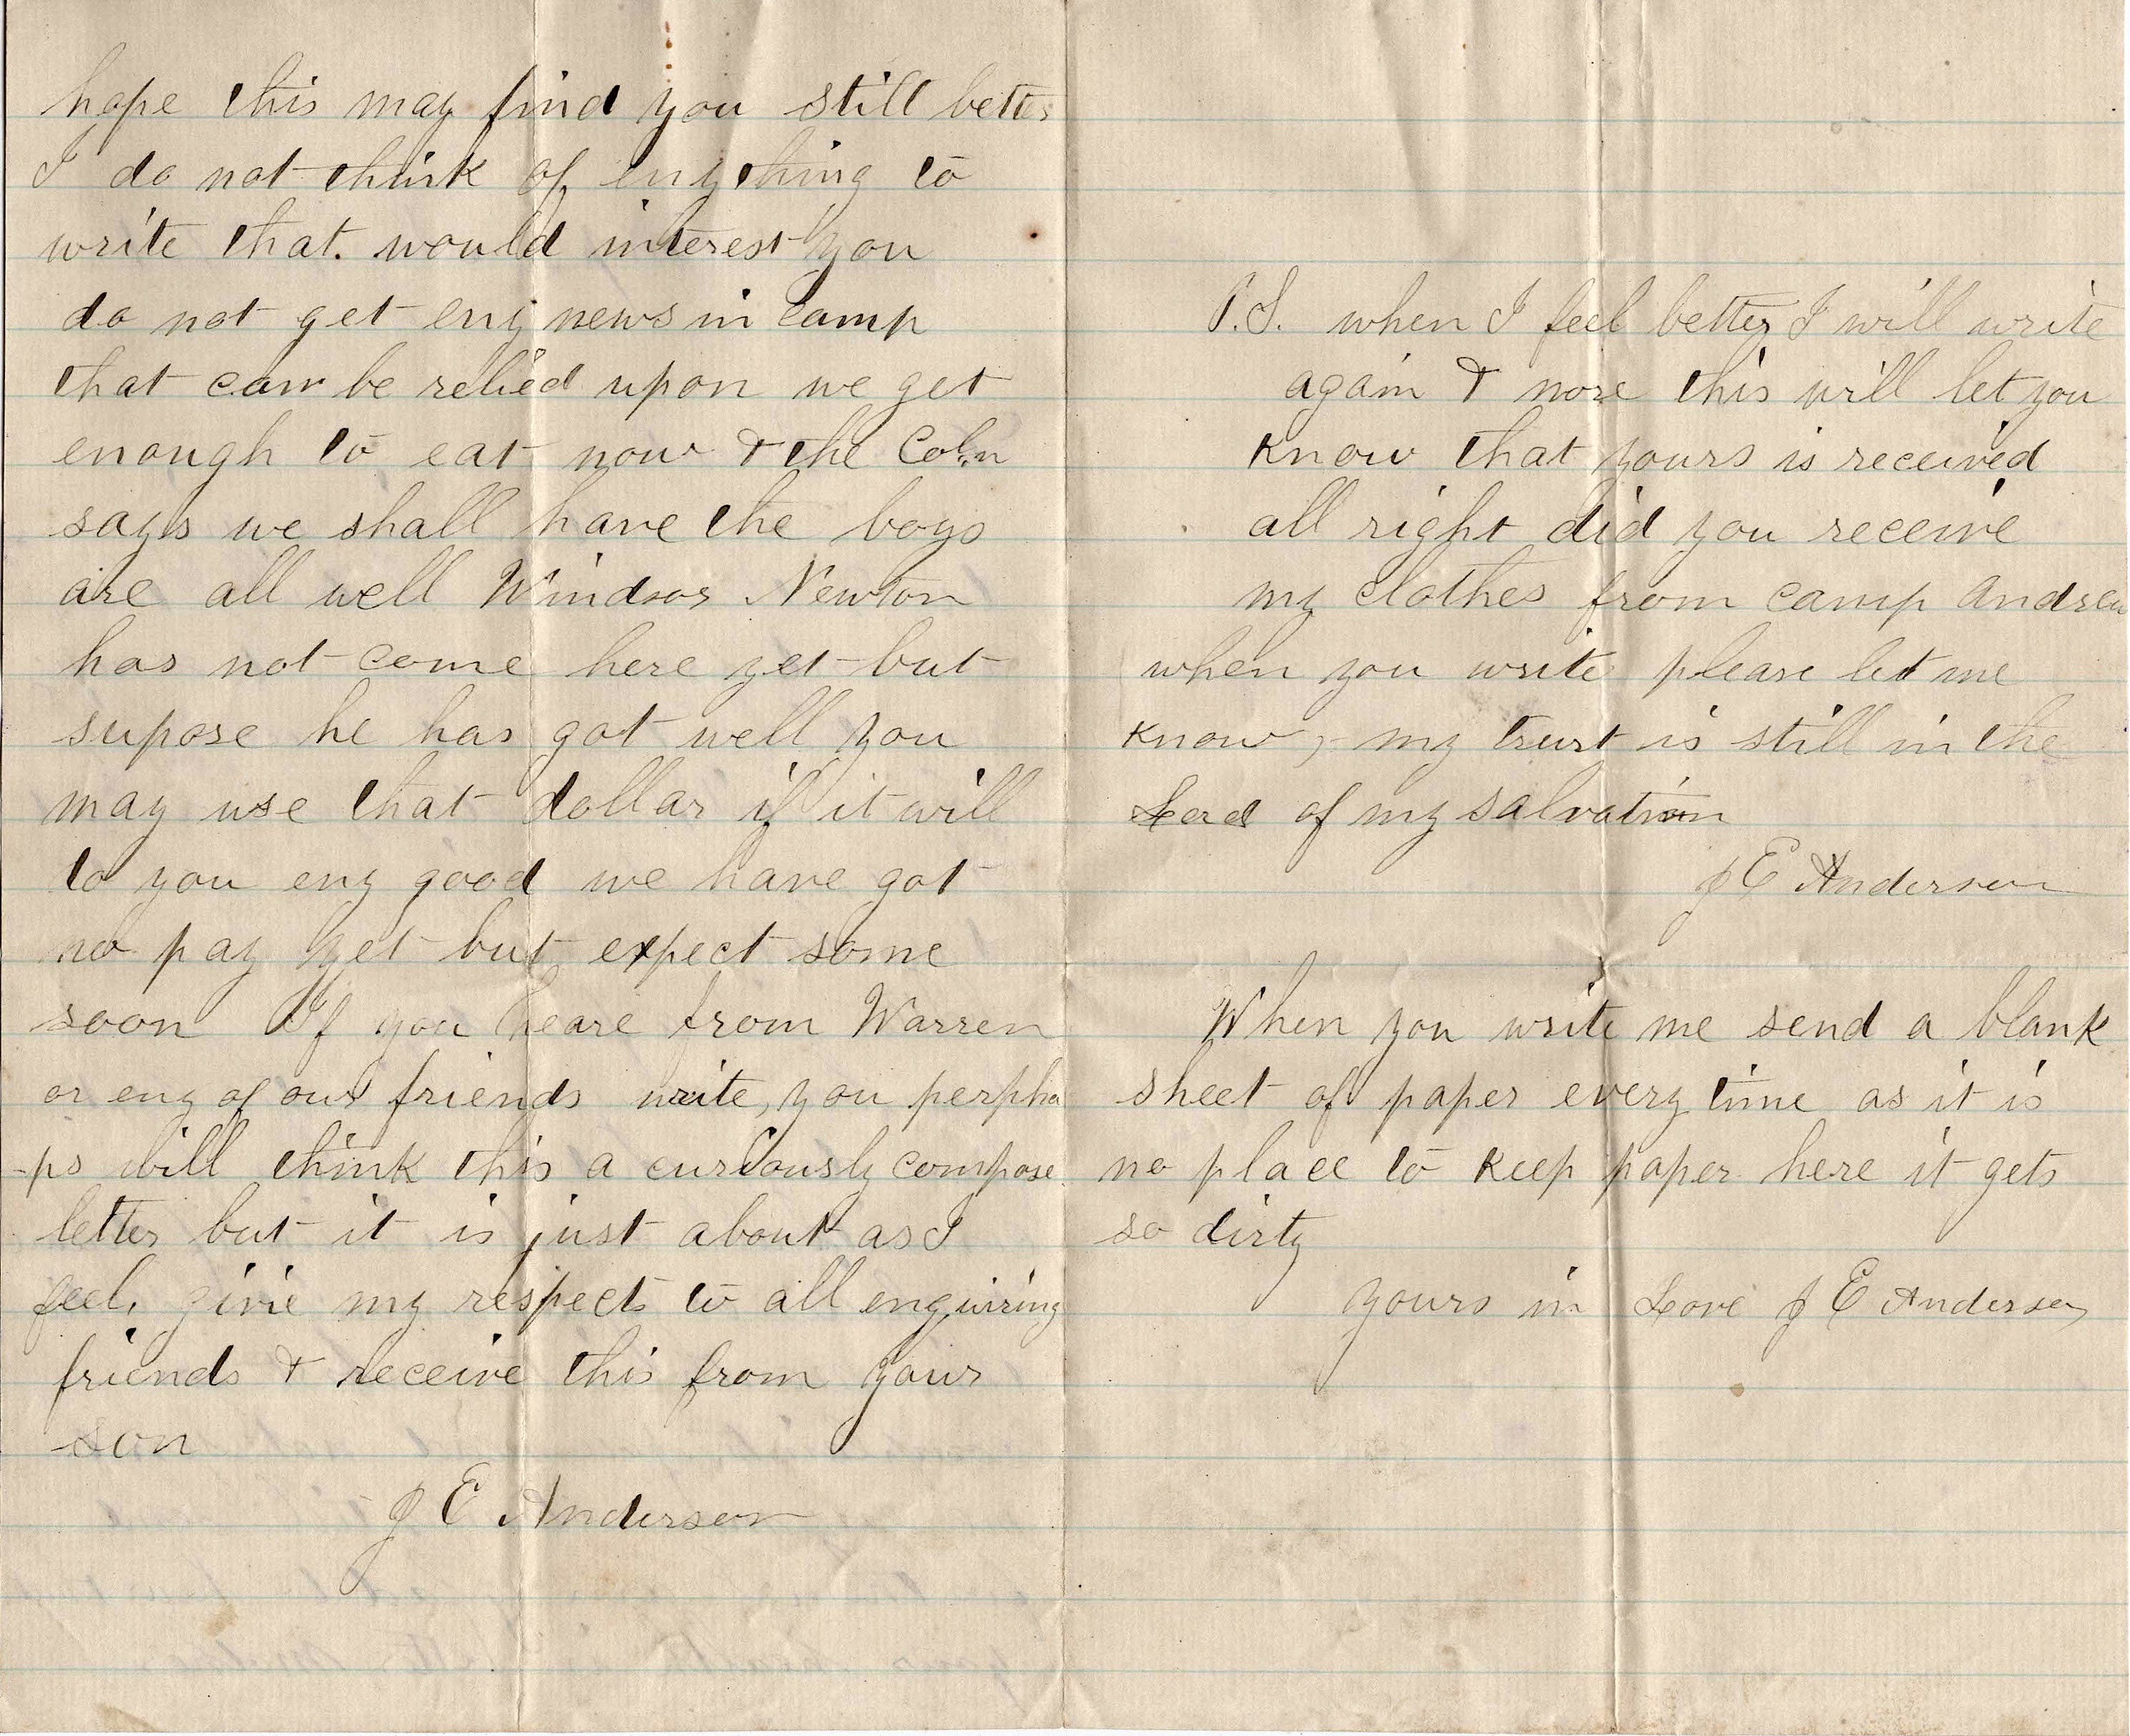 hope this may find you still better
I do not think of enything to
write that. would interest you
do not get eny news in camp
that can be relied upon we get
enough to eat now & the Coln
says we shall have the boys
are all well Windsor Newton
has not come here yet but
supose he has got well you
may use that dollar if it will
to you eny good we have got
no pay yet but expect some
soon If you heare from Warren
or eny of our friends write, you perpha
-ps will think this a curiously compose
letter but it is just about as I
feel, give my respects to all enquiring
friends & receive this from your
son
J E Anderson
P.S. when I feel better I will write
again & more this will let you
know that yours is received
all right did you receive
my clothes from camp Andrew
when you write please let me
know, my trust is still in the
Lord of my salvation
J E Anderson
When you write me send a blank
sheet of paper every time as it is
no place to keep paper here it gets
so dirty
yours in Love J E Anderson